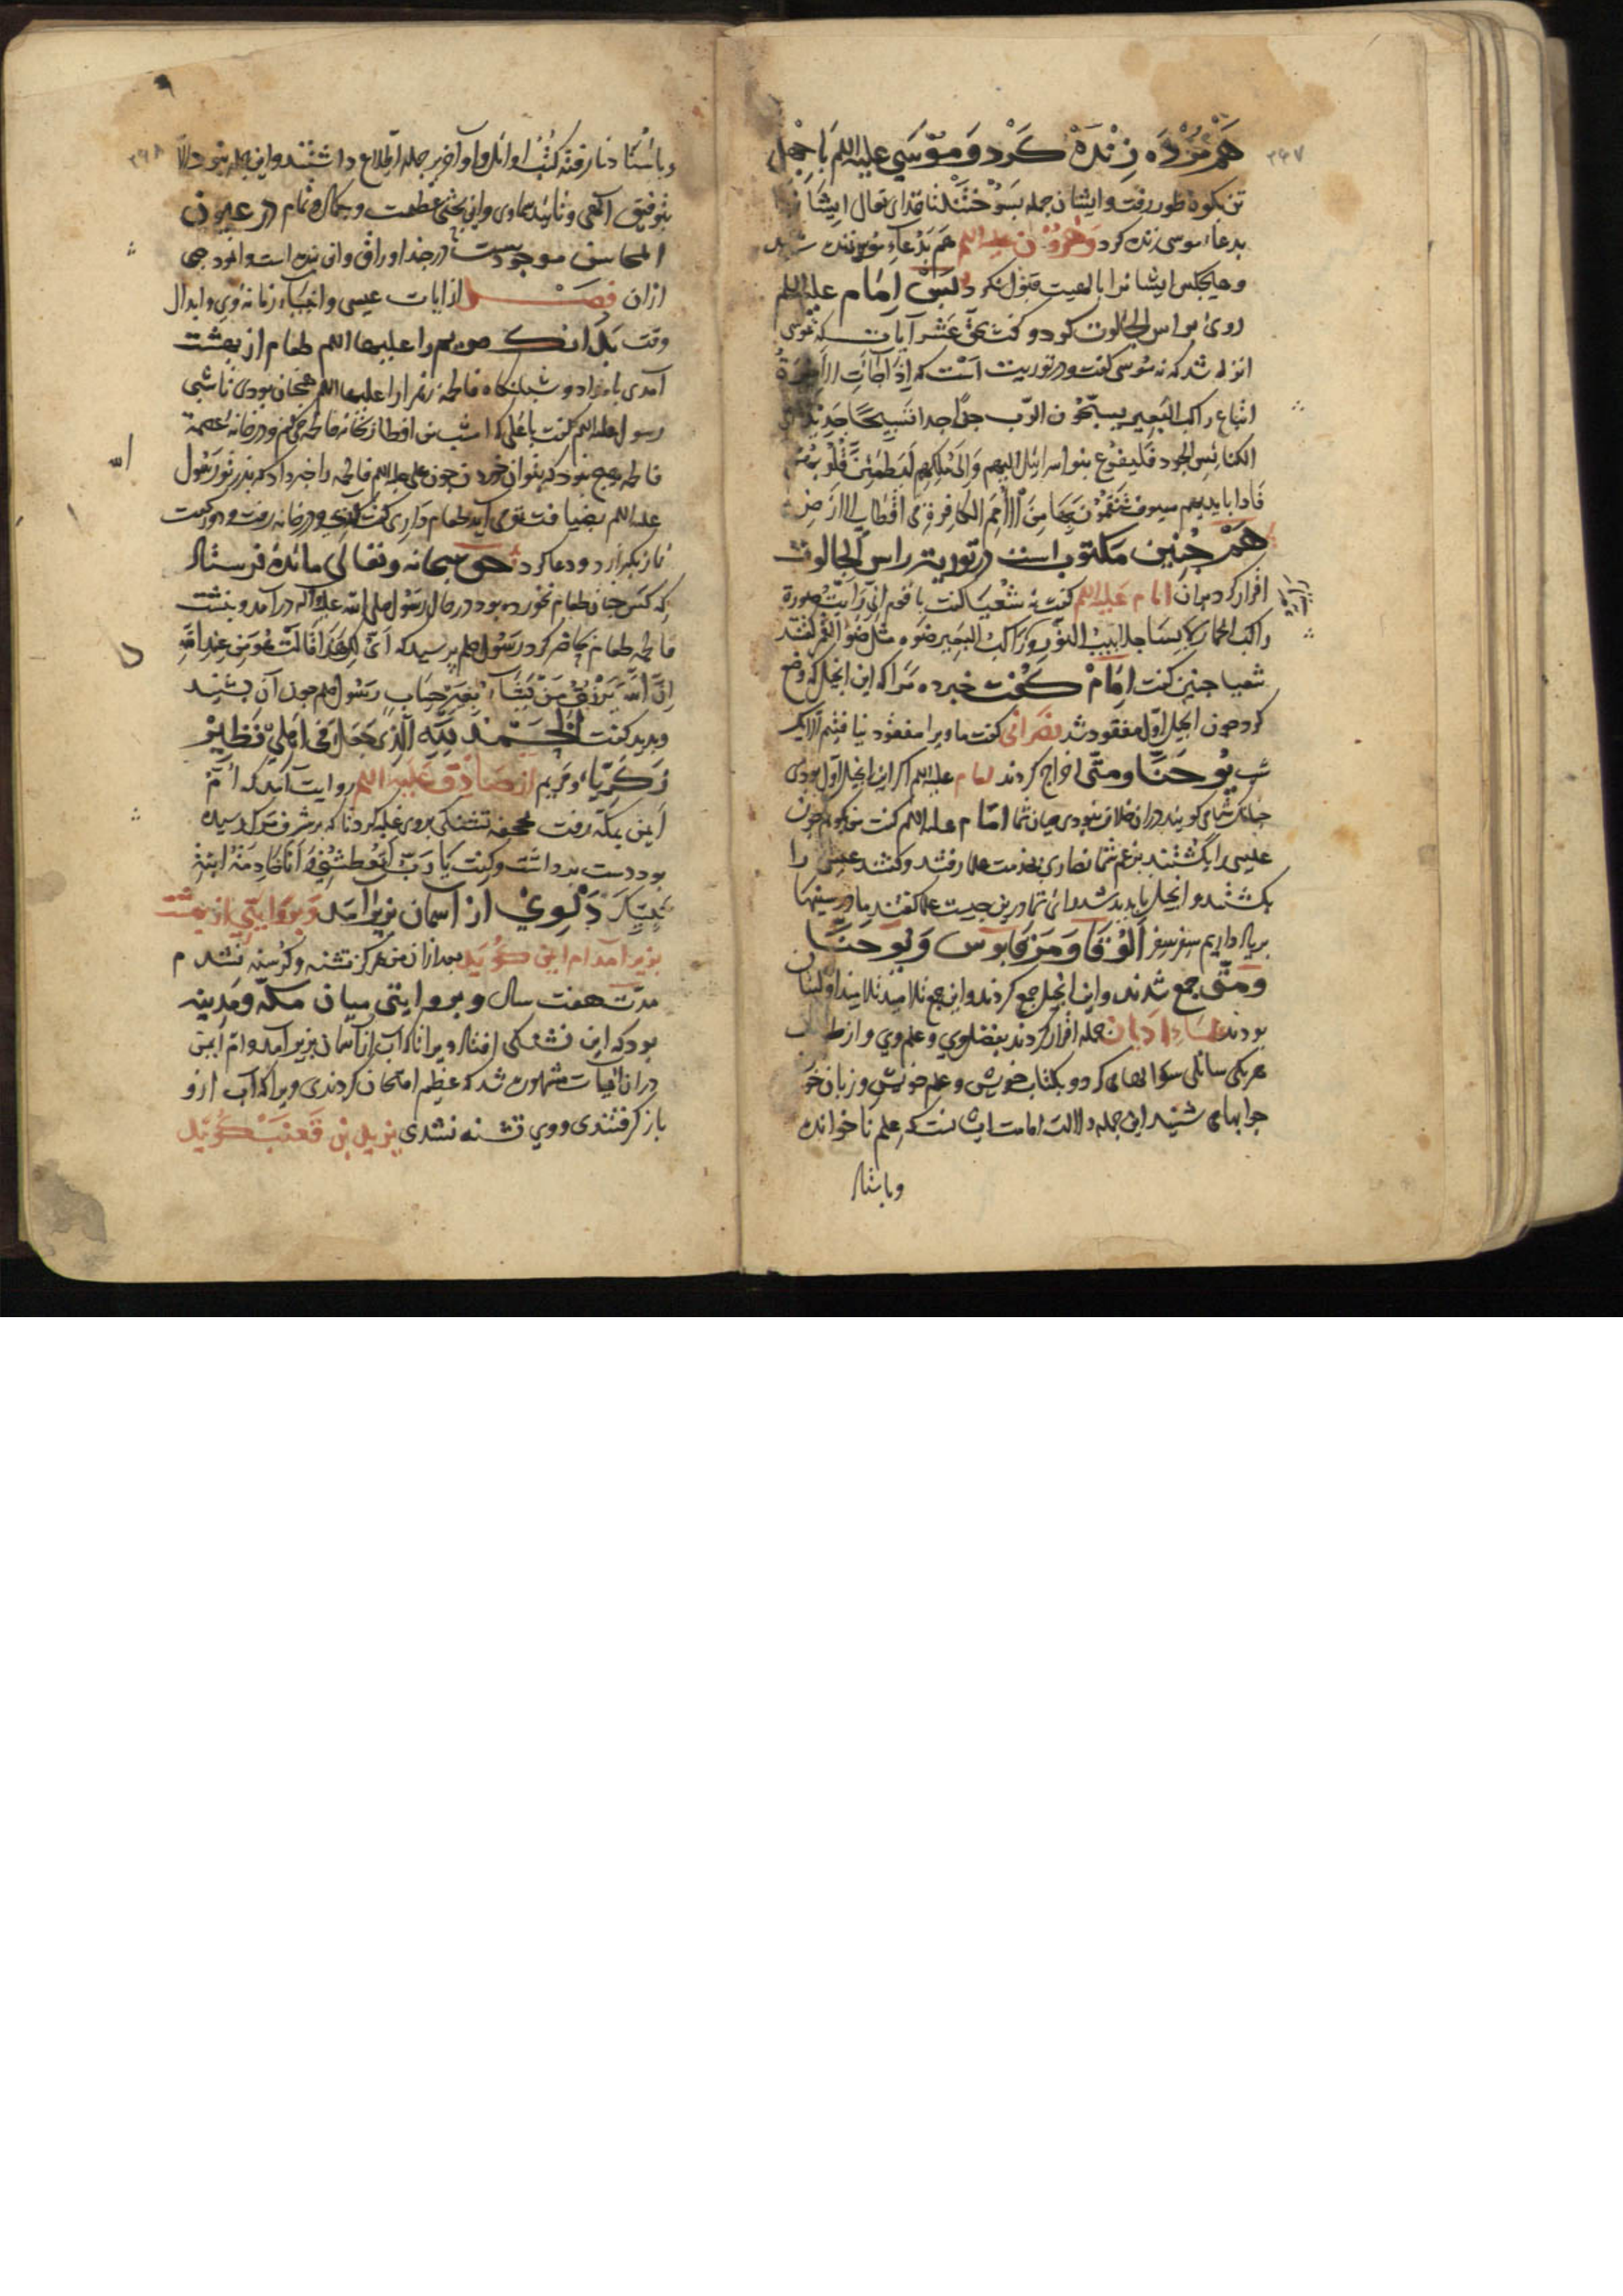 ۳۴۷
هم مرده زنده کرد و موسی علیه السلم با چهل
تن بکوه طور رفت و ایشان جمله بسوختند تا خدای تعال ایشانرا
بدعاء موسی زنده کرد وهرون علیه السلم هم بدعاء موسی زنده شد
و هیچکس ایشانرا بالهیت قبول نکرد پس امام علیه السلم
روی براس الجالوت کرد و گفت بحق عشر آیات که بموسی
انزله شد که نه موسی گفت و در توریت است که اذا جاءت الاخیرة
اتباع راکب البعیر یسبحون الرب جدا جدا تسبیحا جدیدا فی
الکنائس الجدد فلیفزع بنو اسرائیل الیهم والی ملکهم لتطمئن قلوبهم
فان بایدیهم سیوف ینتقمون بها من الامم الکافرة فی اقطار الارض
هم چنین مکتوب است در توریت راس الجالوت
اقرار کرد بدان امام علیه السلم گفت نه شعیا گفت یا قوم انی رایت صورة
راکب الحمار لابسا جلابیب النور و راکب البعیر ضوءه مثل ضوء القمر گفتند
شعیا چنین گفت امام گفت خبر ده مرا که این انجیل که وضع
کرد چون انجیل اول مفقود شد نصرانی گفت ما ویرا مفقود نیافتیم الا یک
شب یوحنا و متی اخراج کردند امام علیه السلم اگر این انجیل اول بودی
چنانک شما می گویند در ان خلاف نبودی میان شما امام علیه السلم گفت من گویم چون
عیسی را بکشتند بزعم شما نصاری بخدمت علما رفتند و گفتند عیسی را
بکشتند و انجیل ناپدید شد رای شما درین چیست علما گفتند ما در سینها
بریاد داریم سفر سفر الوقا و مرقابوس و یوحنا
و متی جمع شدند و این انجیل جمع کردند و این جمع تلامیذ تلامیذ اولینان
بودند علماء ادیان جمله اقرار کردند بفضل وی و علم وی و از طرف
هر یکی سائلی سوالها می کرد و بکتاب خویش و علم خویش و زبان خود
جوابها می شنید این جمله دلالت امامت ایشانست که علم ناخوانده
و باستاد
۳۴۸
و باستاد نارفته کتب اوائل و اواخر بر جمله اطلاع داشتند و این جمله نبود الا
بتوفیق الهی و تائید سماوی و این بحثی عظیمست و بکمال و تمام در عیون
المحاسن موجودست در چند اوراق و این نبذه است و انموذجی
ازان فصل از ایات عیسی و انبیاء زمانه وی و ابدال
وقت بدانک مریم را علیها السلم طعام از بهشت
آمدی بامداد و شبانگاه فاطمه زهرا را علیها السلم همچنان بودی تا شبی
رسول علیه السلم گفت یا علی که امشب من افطار بخانه فاطمه خواهم کرد و در خانه عصمة
فاطمه هیچ نبود که بتوان خوردن چون علی علیه السلم فاطمه را خبر داد که پدر تو رسول
علیه السلم بضیافت تو می آید طعام داری گفت آری و در خانه رفت و دو رکعت
نماز بگزارد و دعا کرد حق سبحانه و تعالی مائده فرستاد
که کس چنان طعام نخورده بود در حال رسول صلی الله علیه و آله درآمد و بنشت
فاطمه طعام حاضر کرد رسول صلعم پرسید که انی لک هذا قالت هو من عند الله
ان الله یرزق من یشاء بغیر حساب رسول صلعم چون آن بشنید
و بدید گفت الحمد لله الذی جعل فی اهلی نظیر
زکریا و مریم از صادق علیه السلم روایت آمد که ام
ایمن بمکه رفت بجحفه تشنگی بروی غلبه کرد تا که بر شرف مرگ رسیده
بود دست برداشت و گفت یا رب اتعطشنی و انا خادمة ابنة
نبیک دلوی از آسمان بزیر آمد و بروایتی از بهشت
بزیر آمد ام ایمن گوید بعد ازان من هرگز تشنه و گرسنه نشدم
مدت هفت سال و بروایتی میان مکه و مدینه
بود که این تشنگی افتاد ویرا تا که آب از آسمان بزیر آمد و ام ایمن
در ان انبیات مشهور شد که عظیم امتحان کردندی ویرا که آب ازو
باز گرفتندی و وی تشنه نشدی یزید بن قعنب گوید